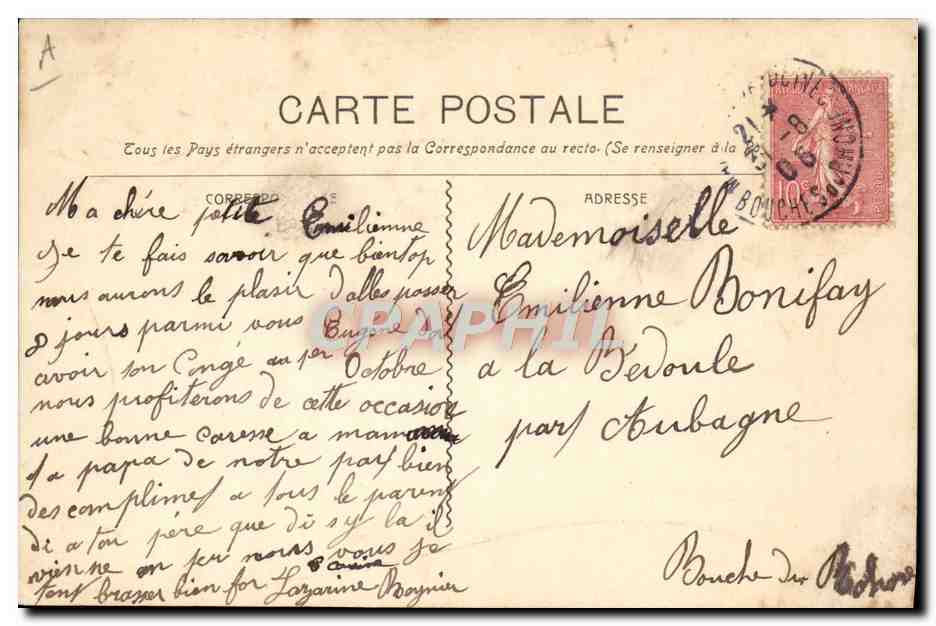 A
CARTE POSTALE
Tous les Pays étrangers n'acceptent pas la Correspondance au recto. (Se renseigner à la
CORRESPO
ADRESSE
21 8 06
BOUCHES-DU-RHONE
10c
Ma chére petite Emilienne
Je te fais savoir que bientop
nous aurons le plaisir d'alles passer
8 jours parmi vous Eugène dois
avoir son Congé au 1er Octobre
nous profiterons de cette occasion
une bonne Caresse a maman
a papa de notre part bien
des compliments a tous le parent
di a ton père que di sy la il
vienne un peu nous vous je
tent brasser bien for Lazarine Boynier
Mademoiselle
Emilienne Bonifay
a la Bedoule
part Aubagne
Bouche du Rhone
CPAPHIL